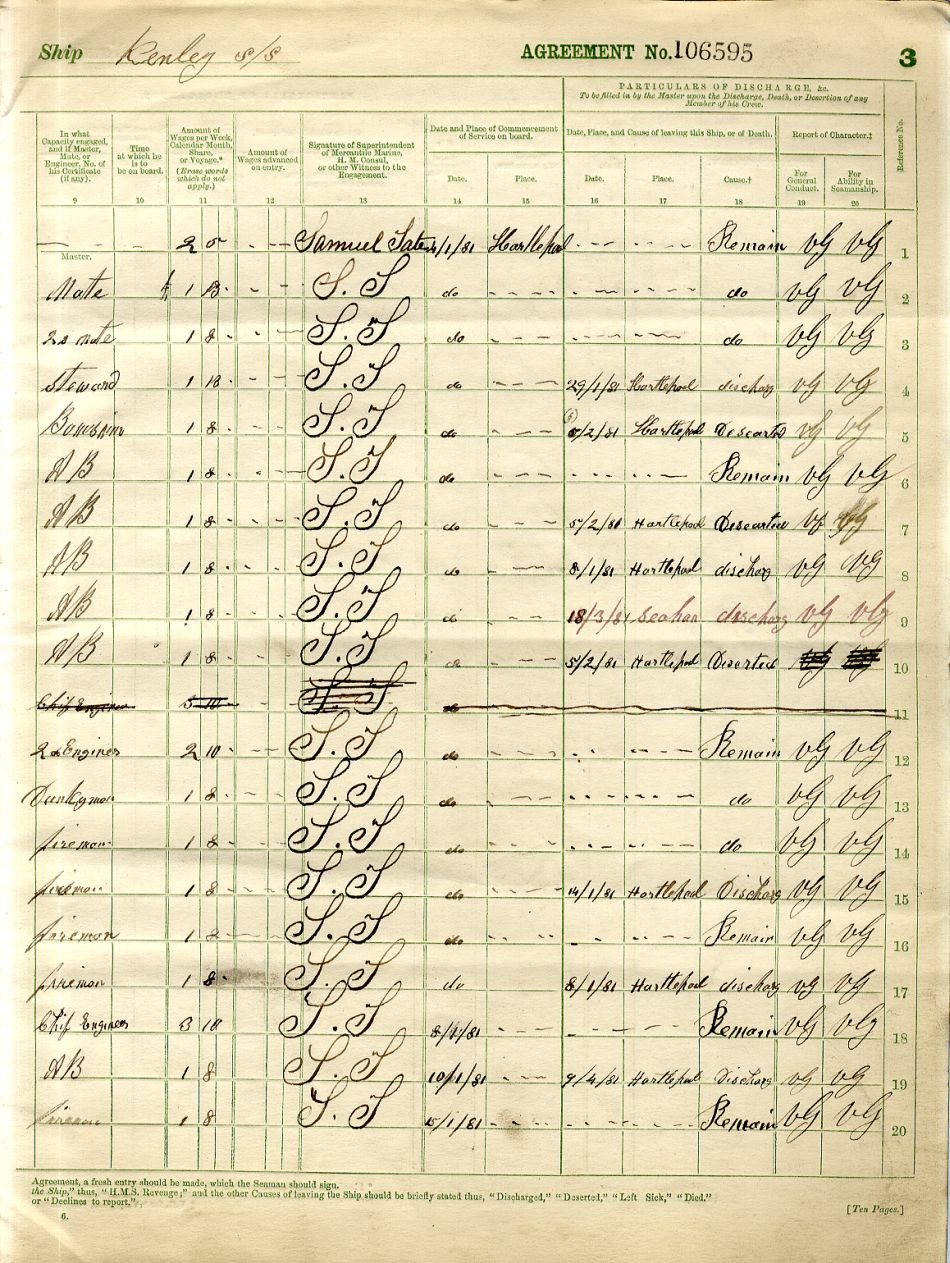 Ship Kenley s/s AGREEMENT No. 106595 3
PARTICULARS OF DISCHARGE, &c.
To be filled in by the Master upon the Discharge, Death, or Desertion of any
Member of his Crew.
In what Capacity engaged, and if Master, Mate, or Engineer, No. of his Certificate (if any).
Time at which he is to be on board.
Amount of Wages per Week, Calendar Month, Share, or Voyage.* (Erase words which do not apply.)
Amount of Wages advanced on entry.
Signature of Superintendent of Mercantile Marine, H. M. Consul, or other Witness to the Engagement.
Date and Place of Commencement of Service on board.
Date, Place, and Cause of leaving this Ship, or of Death.
Report of Character.‡
Reference No.
Date. Place. Date. Place. Cause.† For General Conduct. For Ability in Seamanship.
9 10 11 12 13 14 15 16 17 18 19 20
2 5 Samuel /1/81 Hartlepool Remain VG VG 1
Master.
Mate 1 S. S do do VG VG 2
2d mate 1 8 S. S do do VG VG 3
Steward 1 18 S. S do 29/1/81 Hartlepool discharg VG VG 4
1 8 S. S do 5/2/81 Hartlepool Desearted VG VG 5
AB 1 8 S. S do Remain VG VG 6
AB 1 8 S. S do 5/2/81 Hartlepool Desearted VG VG 7
AB 1 8 S. S do 8/1/81 Hartlepool discharg VG VG 8
AB 1 8 S. S do 18/3/81 Seahan discharg VG VG 9
AB 1 8 S. S do 5/2/81 Hartlepool Deserted 10
Chif Enginer 3 10 S. S do 11
2d Enginer 2 10 S. S do Remain VG VG 12
Dunkyman 1 8 S. S do do VG VG 13
fireman 1 8 S. S do do VG VG 14
fireman 1 8 S. S do 14/1/81 Hartlepool Discharg VG VG 15
fireman 1 8 S. S do Remain VG VG 16
fireman 1 8 S. S do 8/1/81 Hartlepool discharg VG VG 17
Chif Engineer 3 10 S. S 8/1/81 Remain VG VG 18
AB 1 8 S. S 10/1/81 9/4/81 Hartlepool Discharg VG VG 19
fireman 1 8 S. S 5/1/81 Remain VG VG 20
Agreement, a fresh entry should be made, which the Seaman should sign.
the Ship," thus, "H.M.S. Revenge;" and the other Causes of leaving the Ship should be briefly stated thus, "Discharged," "Deserted," "Left Sick," "Died."
or "Declines to report."
6. [Ten Pages.]